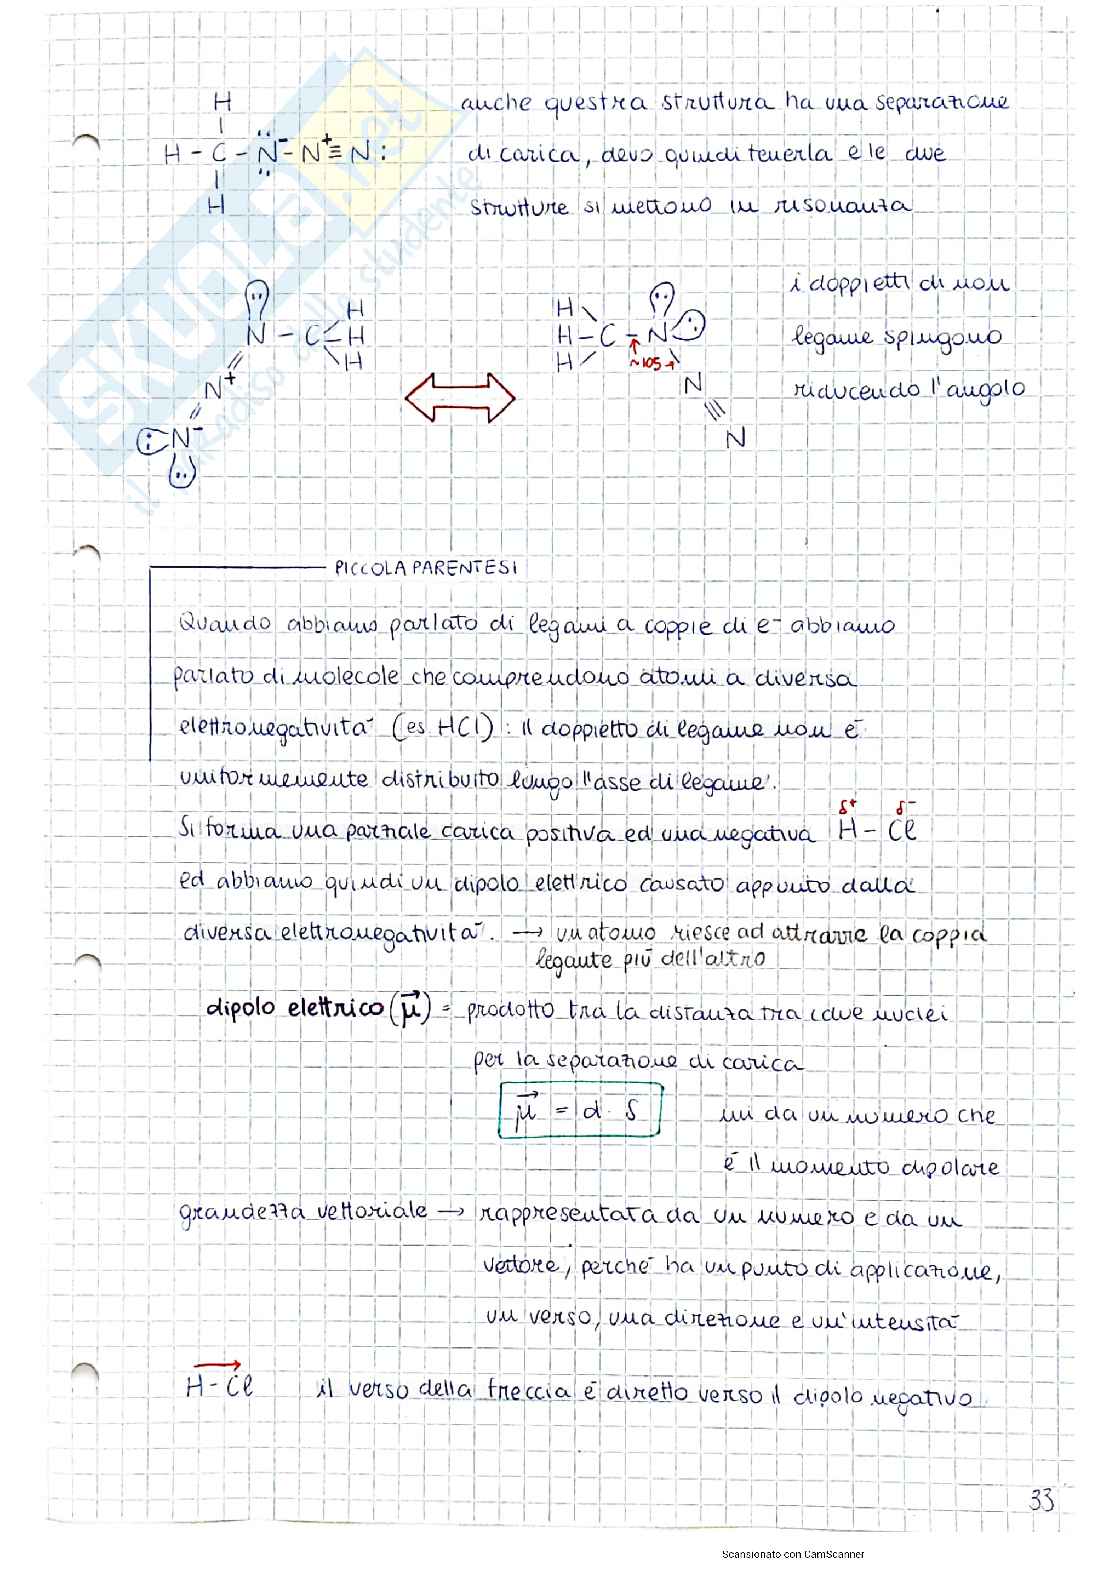 H
|
H - C - N̈⁻ - N⁺ ≡ N :
|
H
anche questra struttura ha una separazione
di carica, devo quindi tenerla e le due
strutture si mettono in risonanza
N - C H H H
N⁺
N⁻
H
H - C - N
H
~105
N
N
i doppietti di non
legame spingono
riducendo l'angolo
PICCOLA PARENTESI
Quando abbiamo parlato di legami a coppie di e⁻ abbiamo
parlato di molecole che comprendono atomi a diversa
elettronegatività (es HCl): il doppietto di legame non è
uniformemente distribuito lungo l'asse di legame.
Si forma una parziale carica positiva ed una negativa H - Cl
δ⁺ δ⁻
ed abbiamo quindi un dipolo elettrico causato appunto dalla
diversa elettronegatività. → un atomo riesce ad attrarre la coppia
legante più dell'altro
dipolo elettrico (μ⃗) = prodotto tra la distanza tra i due nuclei
per la separazione di carica
μ⃗ = d · δ
mi da un numero che
è il momento dipolare
grandezza vettoriale → rappresentata da un numero e da un
vettore, perché ha un punto di applicazione,
un verso, una direzione e un'intensità
H - Cl il verso della freccia è diretto verso il dipolo negativo
33
Scansionato con CamScanner
SKUOLA.net